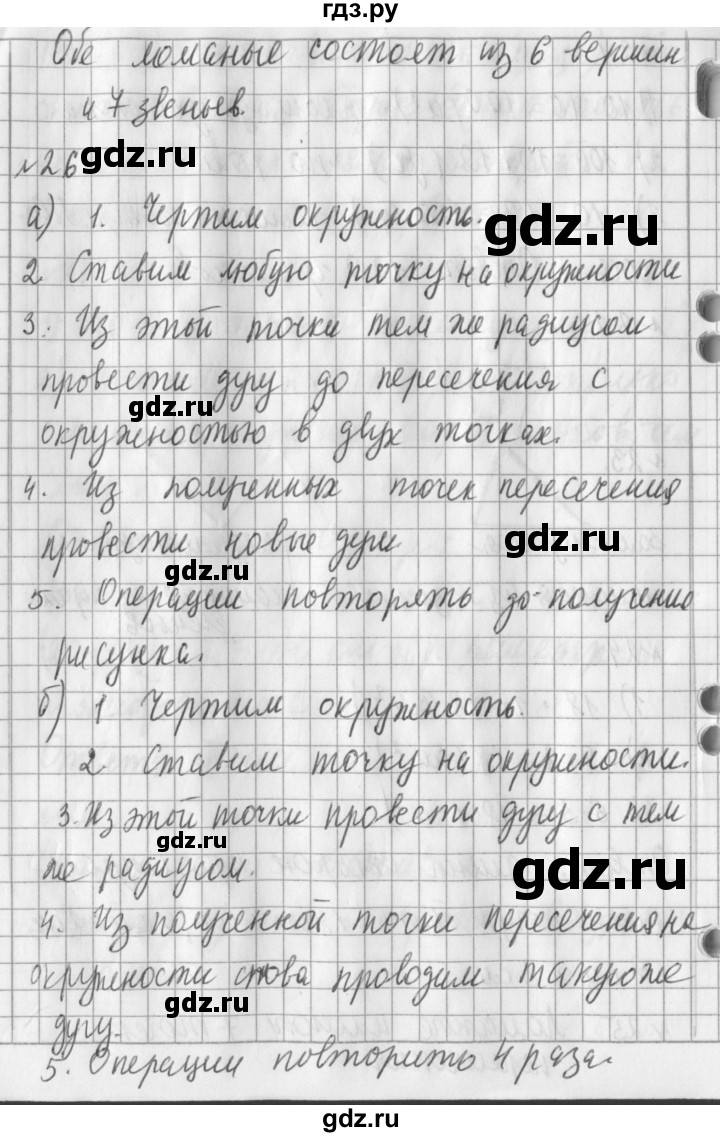 гдз.ру
Обе ломаные состоят из 6 вершин
и 7 звеньев.
№26
gdz.ru
а) 1. Чертим окружность.
gdz.ru
2. Ставим любую точку на окружности
3. Из этой точки тем же радиусом
провести дугу до пересечения с
gdz.ru
окружностью в двух точках.
4. Из полученных точек пересечения
провести новые дуги
gdz.ru
gdz.ru
5. Операции повторять до получения
рисунка.
б) 1 Чертим окружность.
2 Ставим точку на окружности.
3. Из этой точки провести дугу с тем
gdz.ru
же радиусом.
gdz.ru
4. Из полученной точки пересечения на
окружности снова проводим такую же
gdz.ru
дугу.
5. Операции повторить 4 раза.
gdz.ru